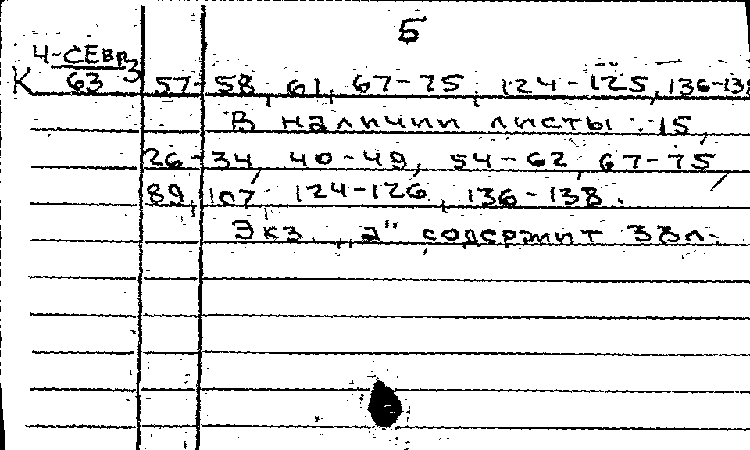 5
Ч-СЕВР З
К 63 57-58, 61, 67-75, 124-125, 136-138
В наличии листы: 15,
26-34, 40-49, 54-62, 67-75,
89, 107, 124-126, 136-138.
Экз. „а" содержит 38л.